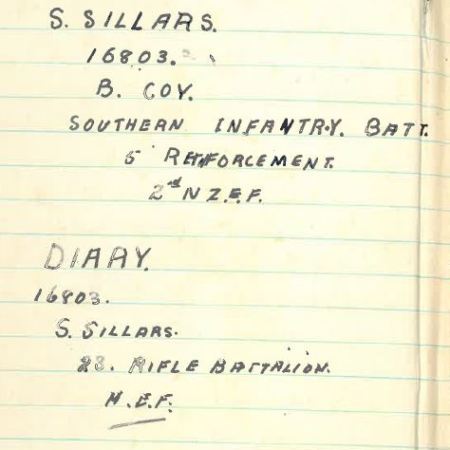 S. SILLARS.
16803.
B. COY.
SOUTHERN INFANTRY. BATT.
5 REINFORCEMENT.
2nd N Z.E.F.
DIARY.
16803.
S. SILLARS.
23. RIFLE BATTALION.
M.E.F.